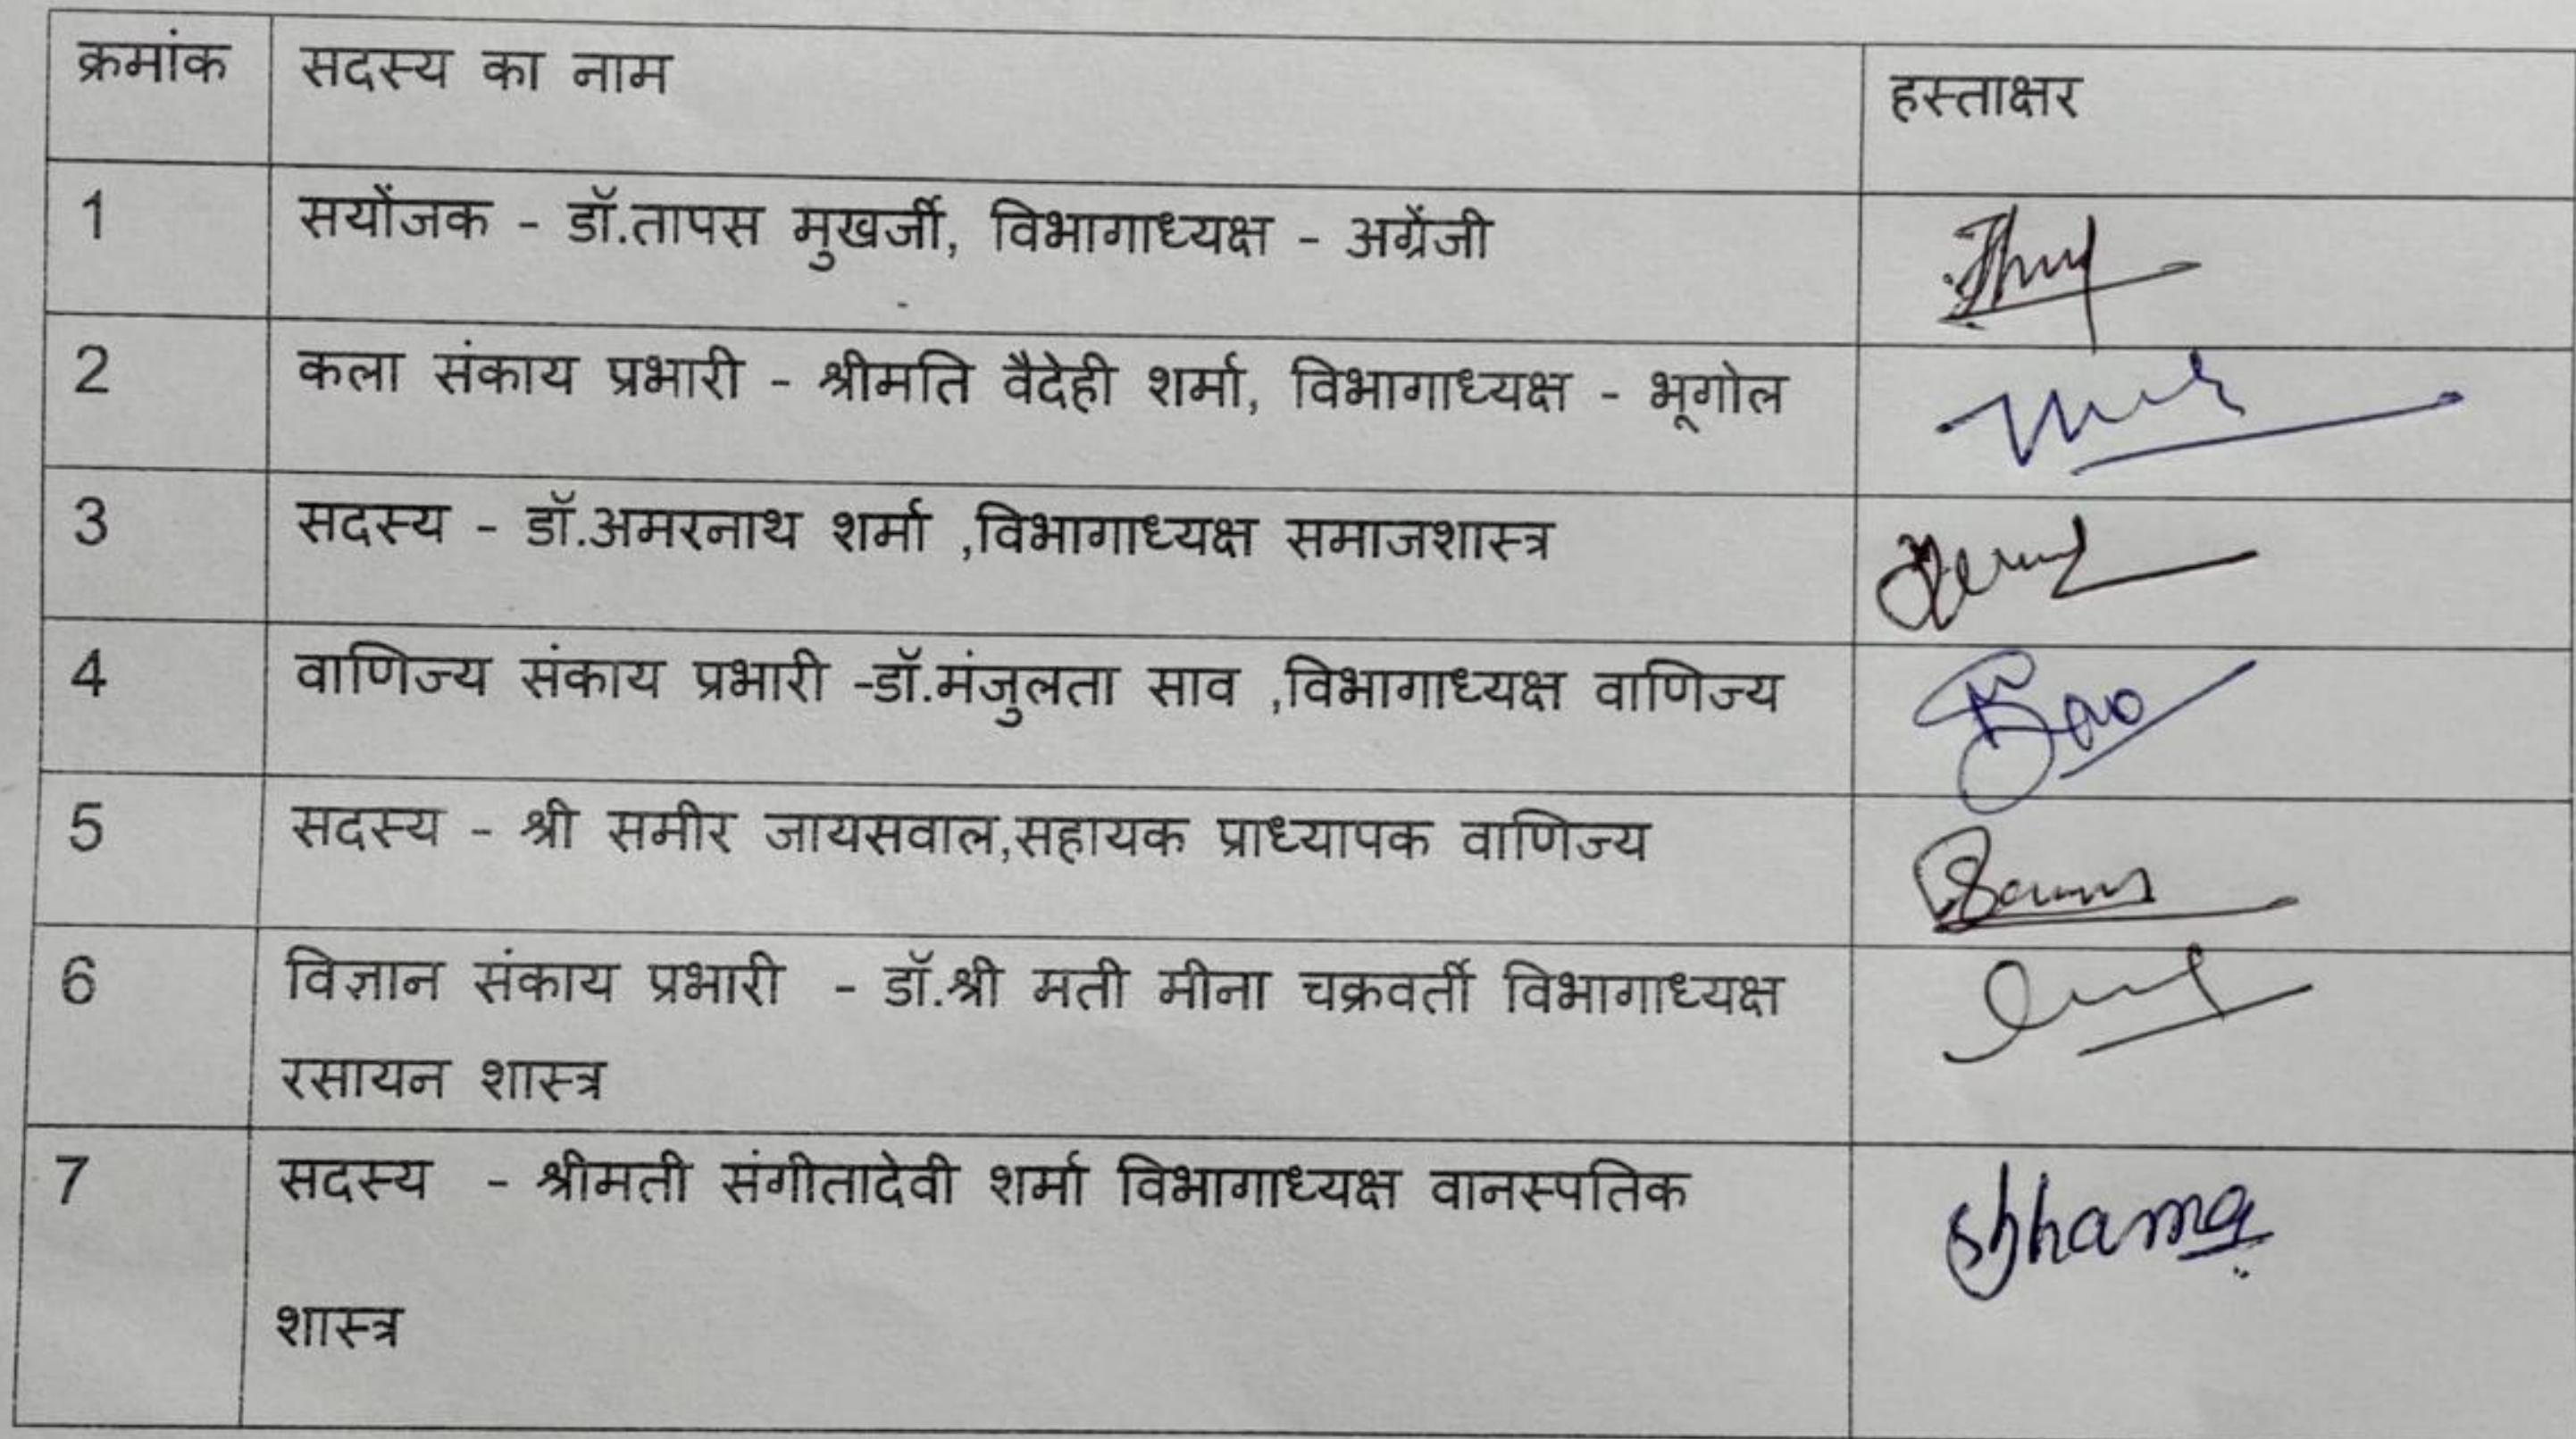 क्रमांक सदस्य का नाम हस्ताक्षर
1 सयोंजक - डॉ.तापस मुखर्जी, विभागाध्यक्ष - अग्रेंजी
2 कला संकाय प्रभारी - श्रीमति वैदेही शर्मा, विभागाध्यक्ष - भूगोल
3 सदस्य - डॉ.अमरनाथ शर्मा ,विभागाध्यक्ष समाजशास्त्र
4 वाणिज्य संकाय प्रभारी -डॉ.मंजुलता साव ,विभागाध्यक्ष वाणिज्य
5 सदस्य - श्री समीर जायसवाल,सहायक प्राध्यापक वाणिज्य
6 विज्ञान संकाय प्रभारी - डॉ.श्री मती मीना चक्रवर्ती विभागाध्यक्ष
रसायन शास्त्र
7 सदस्य - श्रीमती संगीतादेवी शर्मा विभागाध्यक्ष वानस्पतिक
शास्त्र